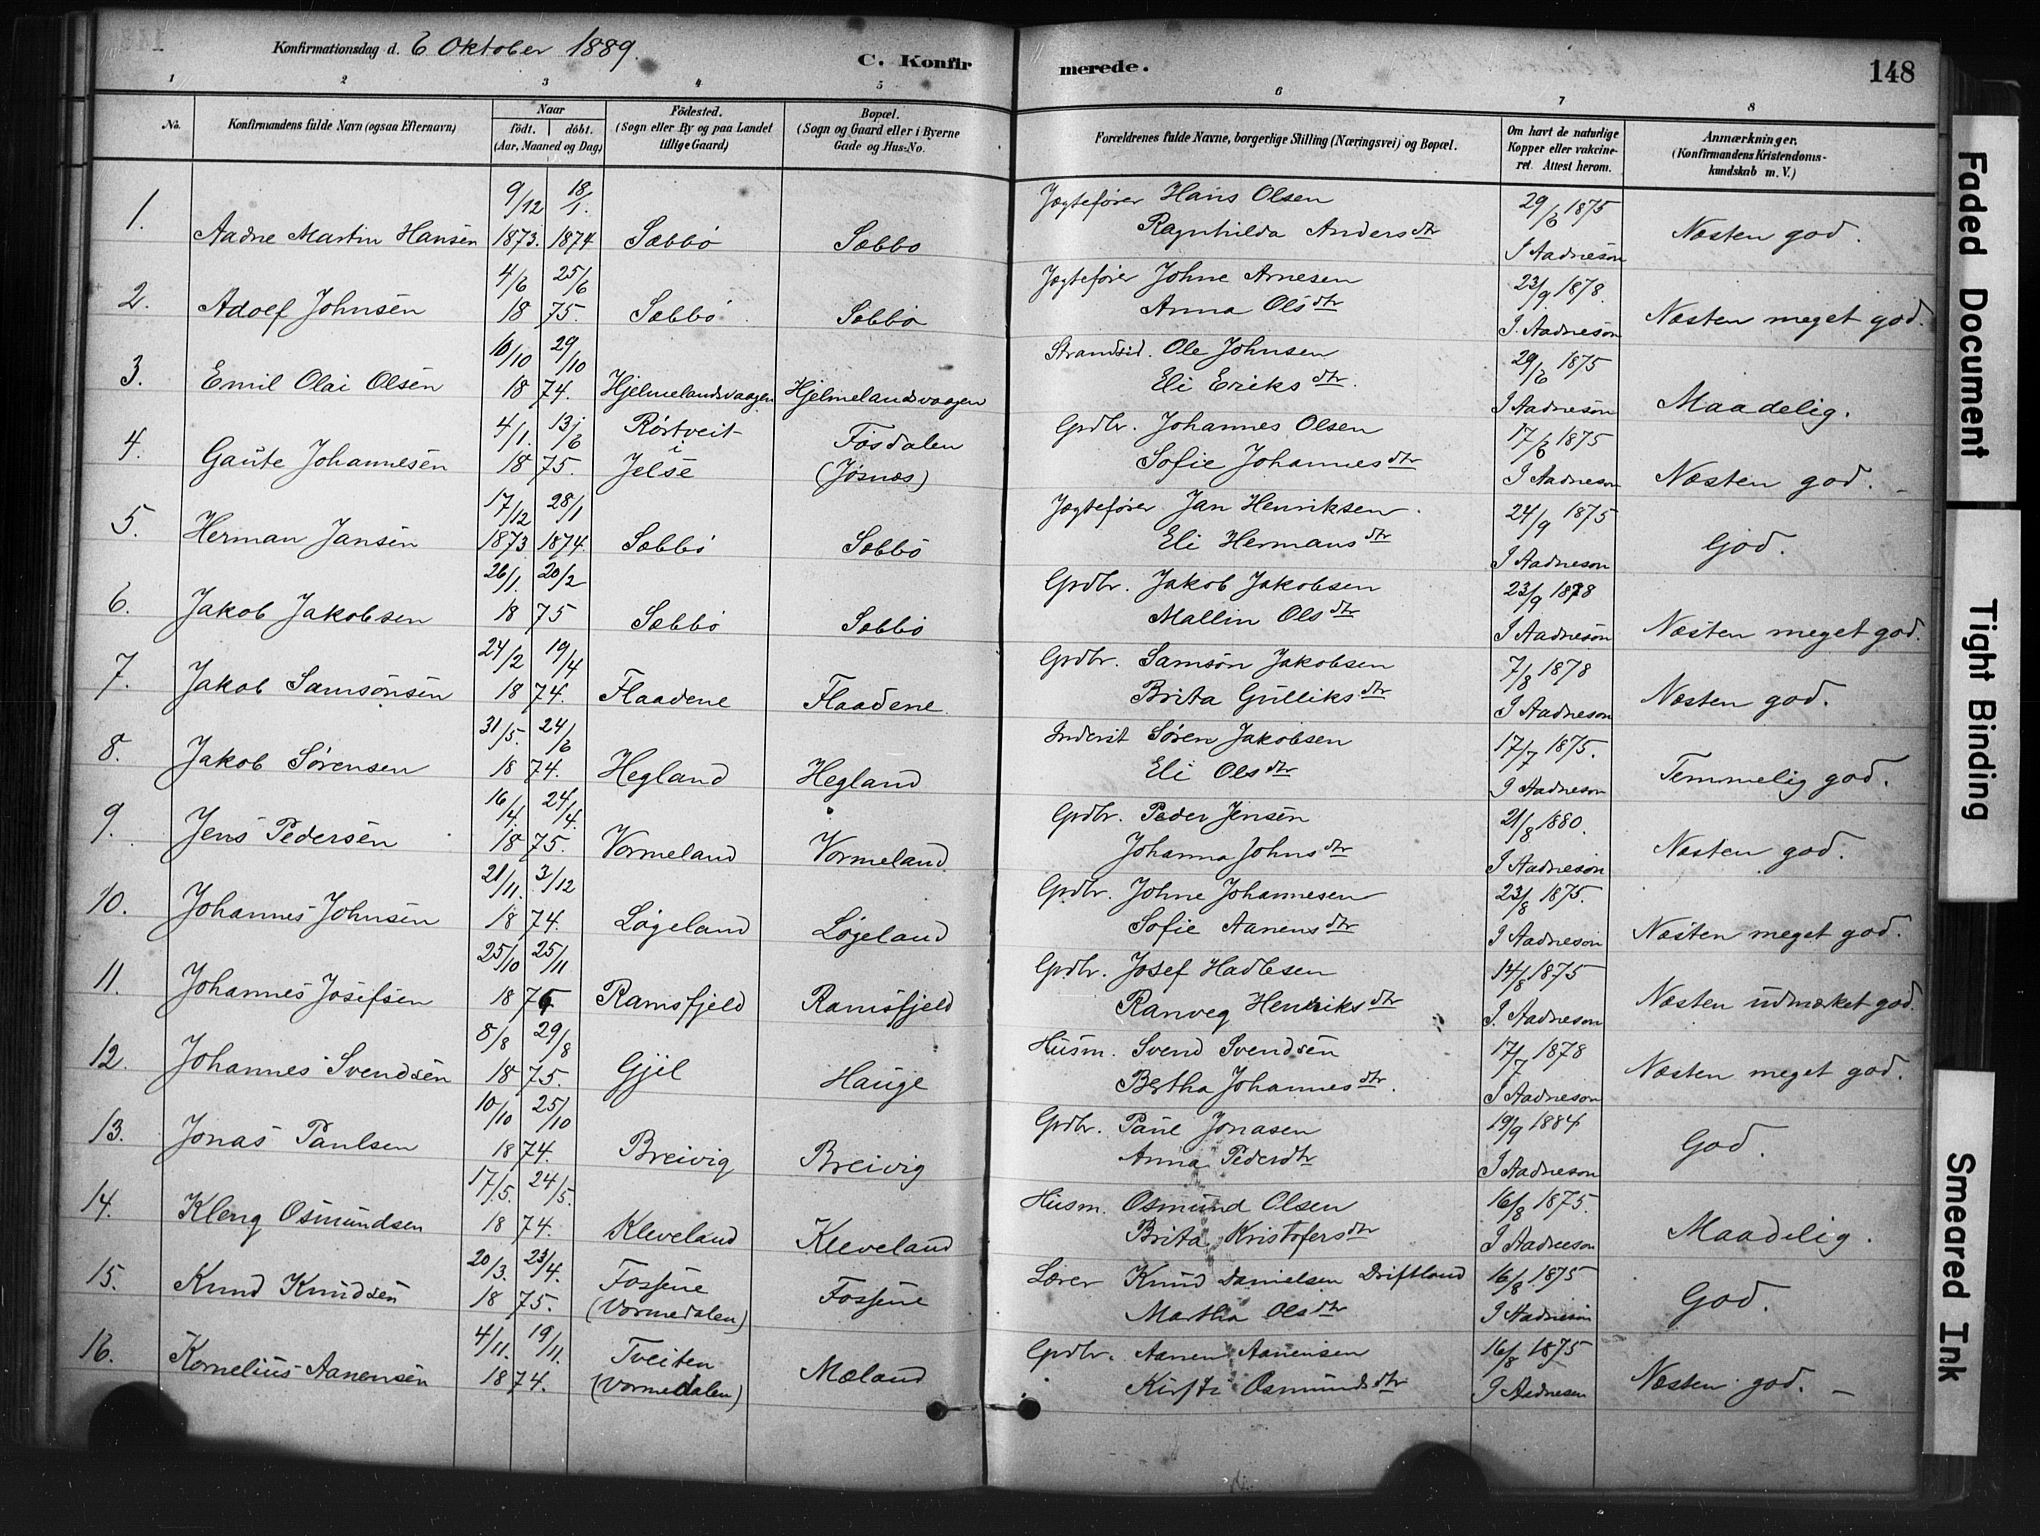 Konfirmationsdag d. 6 Oktober 1889.
C. Konfirmerede.
148
1 2 3 4 5 6 7 8
No.
Konfirmandens fulde Navn (ogsaa Efternavn)
Naar
födt. döbt.
(Aar, Maaned og Dag)
Födested.
(Sogn eller By og paa Landet
tillige Gaard)
Bopæl.
(Sogn og Gaard eller i Byerne
Gade og Hus-No.
Forældrenes fulde Navne, borgerlige Stilling (Næringsvei) og Bopæl.
Om havt de naturlige
Kopper eller vakcine-
ret. Attest herom.
Anmærkninger.
(Konfirmandens Kristendoms-
kundskab m. V.)
9/12 18/1. Jægtefører Hans Olsen 29/6 1875
1. Aadne Martin Hansen 1873. 1874 Sæbbø Sæbbo Ragnhilda Andersdtr I Aadneson Næsten god.
4/6 25/6 Jægtefører Johne Arnesen 23/9 1878.
2. Adolf Johnsen 18 75. Sæbbø Sæbbø Anna Olsdtr I. Aadneson Næsten meget god.
10/10 29/10 Strandsid. Ole Johnsen 29/6 1875
3. Emil Olai Olsen 18 74. Hjelmelandsvaagen Hjelmelandsvaagen Eli Eriksdtr. I Aadneson Maadelig.
4/1. 13/6 Rørtveit i Føsdalen Grdbr. Johannes Olsen 17/6 1875
4. Gaute Johannesen 18 75. Jelse (Jøsnæs) Sofie Johannesdtr I Aadneson Næsten god.
17/12 28/1 Jægtefører Jan Henriksen 24/9 1875
5. Herman Jansen 1873. 1874. Sæbbø Sæbbö Eli Hermansdtr I Aadneson God.
26/1. 20/2 Grdbr. Jakob Jakobsen 23/9 1878
6. Jakob Jakobsen 18 75 Sæbbø Sæbbø Mallin Olsdtr I Aadneson Næsten meget god.
24/2 19/4 Grdbr. Samson Jakobsen 7/8 1878
7. Jakob Samsonsen 18 74. Flaadene Flaadene Brita Gulliksdtr I Aadneson Næsten god.
31/5. 24/6 Inderst Søren Jakobsen 17/7 1875.
8. Jakob Sørensen 18 74. Hegland Hegland Eli Olsdtr I Aadneson Temmelig god.
16/4. 24/4. Grdbr. Peder Jensen 21/8 1880.
9. Jens Pedersen 18 75. Vormeland Vormeland Johanna Johnsdtr I Aadneson Næsten god.
21/11. 3/12 Grdbr. Johne Johannesen 23/8 1875.
10. Johannes Johnsen 18 74. Løgeland Løgeland Sofie Aanensdtr I Aadneson Næsten meget god.
25/10 25/11 Grdbr. Josef Hadlesen 14/8 1875
11. Johannes Josefsen 18 75 Ramsfjeld Ramsfjeld Ranveg Henriksdtr I. Aadneson Næsten udmærket god.
8/8 29/8 Husm. Svend Svendsen 17/7 1878
12. Johannes Svendsen 18 75. Gjil Hauge Bertha Johannesdtr. I Aadneson Næsten meget god.
10/10 25/10 Grdbr. Paul Jonasen 19/9 1884
13. Jonas Paulsen 18 74. Breivig Breivig Anna Pedersdtr I Aadneson God.
17/5. 24/5. Husm. Osmund Olsen 16/8 1875.
14. Kleng Osmundsen 18 74. Kleveland Kleveland Brita Kristofersdtr I Aadneson Maadelig.
20/3. 23/4. Fossene Lærer Knud Danielsen Driftland 16/8 1875
15. Knud Knudsen 18 75. (Vormedalen) Fossene Martha Olsdtr I Aadneson God.
4/11. 19/11. Tveiten Grdbr. Aanen Aanensen 16/8 1875
16. Kornelius Aanensen 18 74. (Vormedalen) Mæland Kirsti Osmundsdtr I Aadnesen Næsten god.
Faded Document
Tight Binding
Smeared Ink